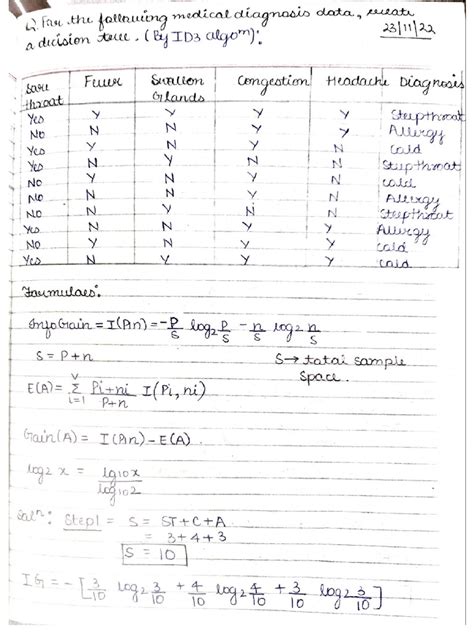 Q. For the following medical diagnosis data, create 23/11/22
a decision tree. (By ID3 algoᵐ):
Sore throat | Fever | Swollen Glands | Congestion | Headache | Diagnosis
Yes Y Y Y Y Strepthroat
No N N Y Y Allergy
Yes Y N Y N cold
Yes N Y N N Strepthroat
No Y N Y N cold
No N N Y N Allergy
No N Y N N Strepthroat
Yes N N Y Y Allergy
No Y N Y Y cold
Yes N Y Y Y cold
Formulaes:
InfoGain = I(P,n) = -P/S log₂ P/S - n/S log₂ n/S
S = P+n S → total sample
Space.
E(A) = Σ_{i=1}^{V} (Pi+ni)/(P+n) I(Pi, ni)
Gain(A) = I(P,n) - E(A).
log₂ x = log₁₀x / log₁₀2
Solⁿ: Step1 S = ST+C+A
= 3+4+3
S = 10
IG = - [3/10 log₂ 3/10 + 4/10 log₂ 4/10 + 3/10 log₂ 3/10]